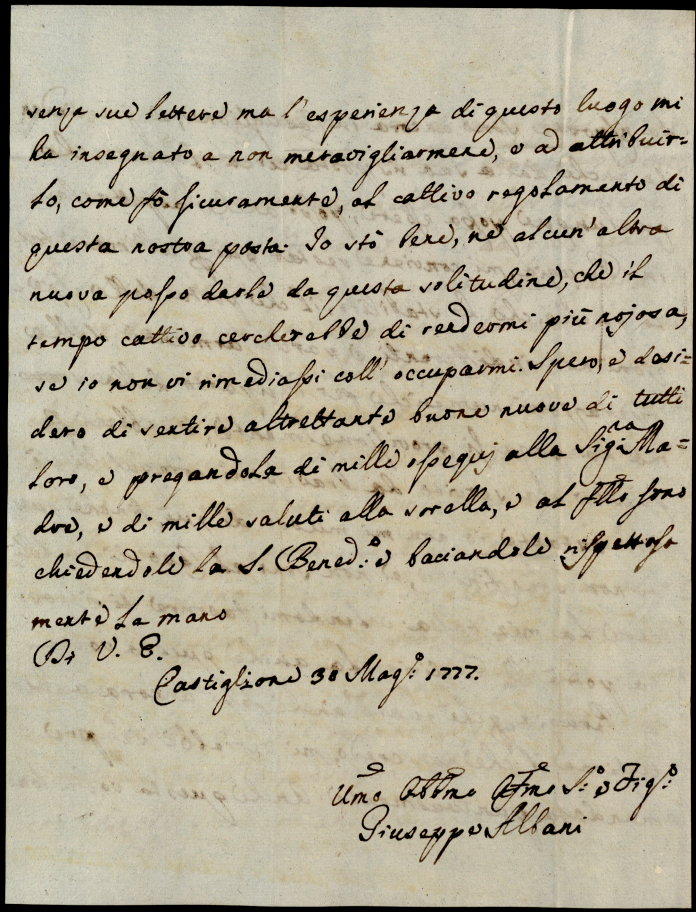 senza sue lettere ma l'esperienza di questo luogo mi
ha insegnato a non meravigliarmene, e ad attribuir=
lo, come fò sicuramente, al cattivo regolamento di
questa nostra posta. Io stò bene, nè alcun'altra
nuova posso darle da questa solitudine, che il
tempo cattivo cercherebbe di rendermi più nojosa,
se io non vi rimediassi coll'occuparmi. Spero, e desi=
dero di sentire altrettante buone nuove di tutti
loro, e pregandola di mille ossequj alla Sig:na Ma=
dre, e di mille saluti alla sorella, e al fllo sono
chiedendole la S. Bened:e e baciandole rispettosa
mente la mano
Di V. E.
Castiglione 30 Mag:o 1777.
Umo Obbmo Affmo S:e e Figo:
Giuseppe Albani